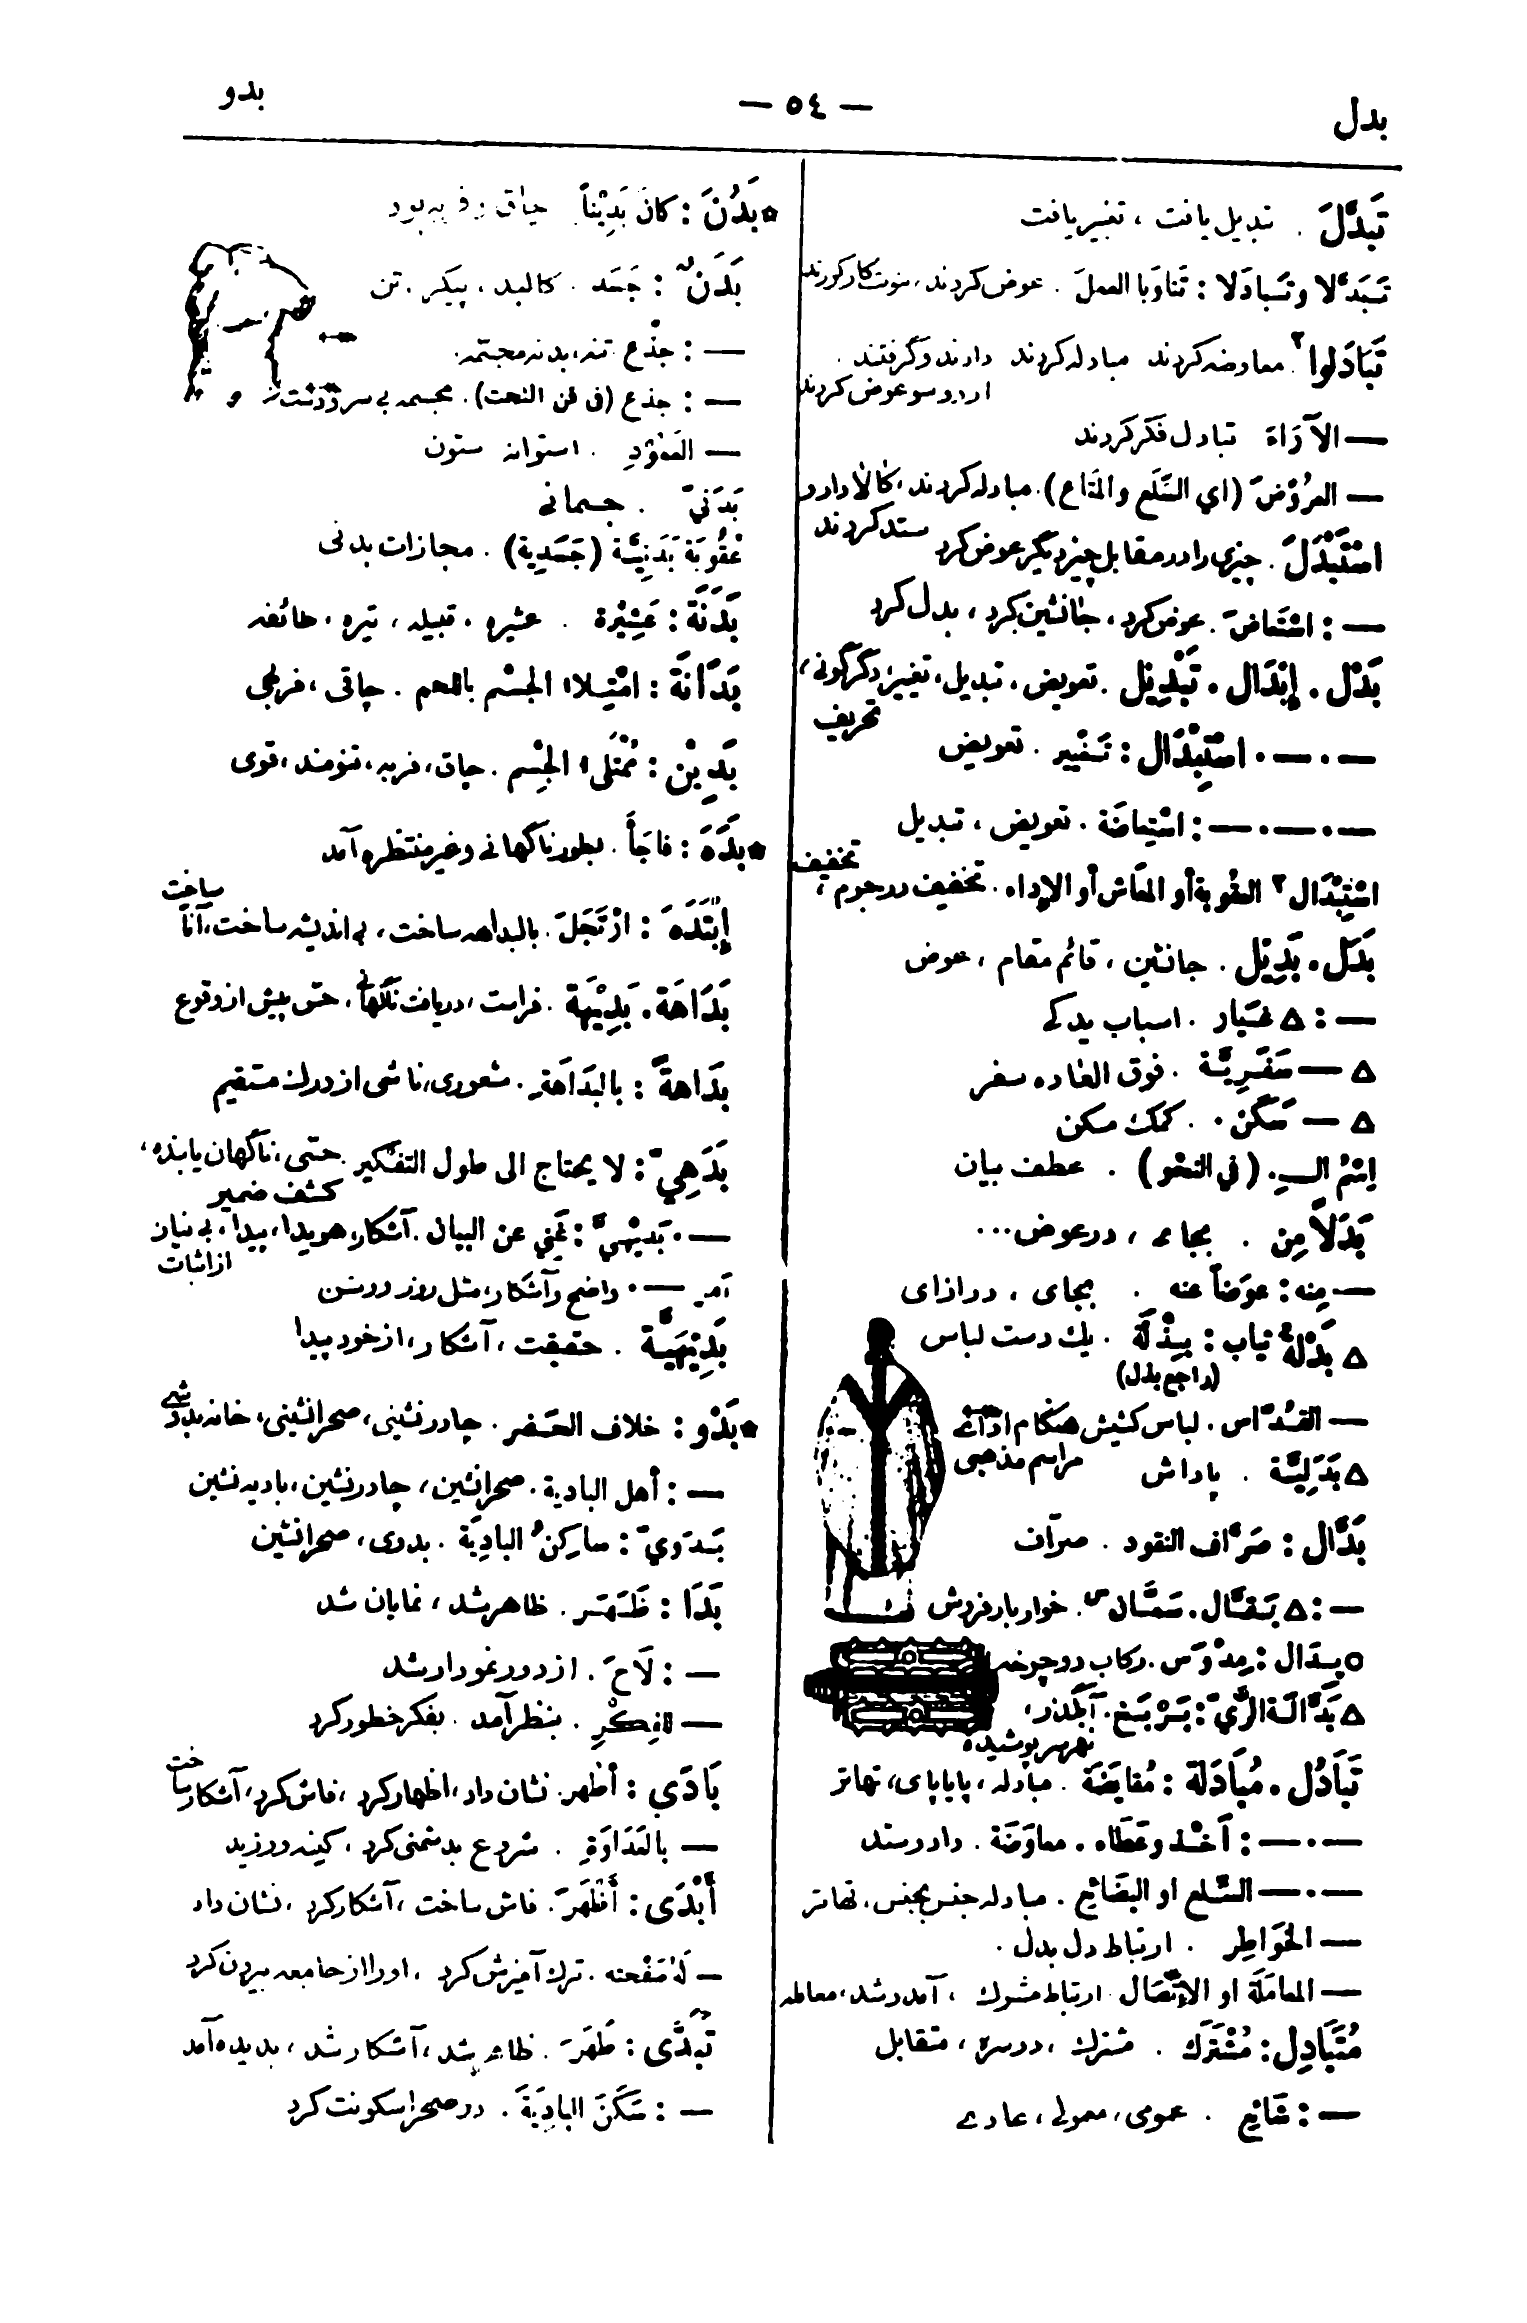 بدل
— ٥٤ —
بدو
تَبَدَّلَ . تبدیل یافت ، تغییر یافت
تَبَدَّلا وتَبادَلا : تَناوَبا العملَ . عوض کردند،
تَبَادَلوا . معاوضه کردند مبادله کردند دادند و گرفتند .
عوض کردند
— الآرَاءَ تبادل فکر کردند
— العرُوْضَ (اي السِّلَع والمَتاع). مبادله کردند، کالا داد و
ستد کردند
اسْتَبْدَلَ . چیزی را در مقابل چیز دیگر عوض کرد
— : اسْتَعاضَ . عوض کرد، جانشین کرد ، بدل کرد
بَدْل . إبْدَال . تَبْدِيْل . تعویض ، تبدیل، تغییر، دگرگونی،
تحریف
— . — . اسْتِبْدَال : تَغْيير . تعویض
— . — . — : اسْتِعاضَة . تعویض ، تبدیل
اسْتِبْدَال العقُوبة أو المعَاش أو الإداء . تخفیف در جرم ،
تخفیف
بَدَل . بَدِيْل . جانشین ، قائم مقام ، عوض
— : △ غيَار . اسباب یدکی
△ — سَفَرِيَّة . فوق العاده سفر
△ — سَكَن . کمک مسکن
اِسْمُ الـ ـ . (في النحْو) . عطف بیان
بَدَلاً مِن . بجای ، در عوض ...
— مِنه : عوَضاً عنه . بجای ، در ازای
△ بَدْلَةُ ثياب : بِذْلَة . یک دست لباس
(راجع بذل)
— القُدَّاس . لباس کشیش هنگام ادای
مراسم مذهبی
△ بَدَلِيَّة . پاداش
بَدَّال : صَرَّاف النقود . صرّاف
— : △ بَقَّال . سَمَّان . خواربار فروش
○ بِدَال : مِدْوَس . رکاب دوچرخه
△ بَدَّالَة الرَّيّ : بَرْبَخ . آبگذر،
نهر سرپوشیده
تَبَادُل . مُبَادَلَة : مُقايَضَة . مبادله ، پایاپای، تهاتر
— . — : أخْذ وعَطَاء . معاوَضَة . داد و ستد
— . — السِّلَع او البضَائِع . مبادله جنس بجنس، تهاتر
— الخَواطِر . ارتباط دل بدل .
— المعامَلَة او الإتِّصَال . ارتباط مشترک ، آمد و شد، معامله
مُتَبَادِل : مُشْتَرَك . مشترک ، دوسره ، متقابل
— : شَائِع . عمومی، معمولی، عادی
بَدُنَ : كانَ بَدِيْناً . چاق و فربه بود
بَدَن : جَسَد . کالبد ، پیکر ، تن
— : جِذْع . تنه، بدنه مجسمه .
— : جذع (في فن النحت) . مجسمه بی سر و دست
— العَمُوْدِ . استوانه ستون
بَدَنيّ . جسمانی
عُقُوبَة بَدَنِيَّة (جَسَدِية) . مجازات بدنی
بَدَنَة : عَشِيْرَة . عشیره ، قبیله ، تیره ، طائفه
بَدَانَة : امْتِلاء الجسْم باللحم . چاقی ، فربهی
بَدِيْن : مُمْتَلىء الجِسْم . چاق، فربه، تنومند، قوی
بَدَهَ : فاجَأَ . بطور ناگهانی و غیر منتظره آمد
إبْتَدَهَ : ارْتَجَلَ . بالبداهه ساخت ، بی اندیشه ساخت ، آناً
ساخت
بَدَاهَة . بَدِيْهَة . فراست ، دریافت ناگهانی ، حس پیش از وقوع
بدَاهةً : بالبَدَاهَةِ . شعوری، ناشی از درک مستقیم
بَدَهِيّ : لا يحتاج الى طول التفكير . حسّی، ناگهان یابنده،
کشف ضمیر
— . بَدِيْهيّ : غَني عن البيان . آشکار، هویدا، پیدا، بی نیاز
از اثبات
أمر — . واضح و آشکار، مثل روز روشن
بَدِيْهِيَّة . حقیقت ، آشکار ، از خود پیدا
بَدْو : خلاف الحَضر . چادرنشینی، صحرانشینی، خانه بدوشی
— : أهل البادية . صحرانشین، چادرنشین، بادیه نشین
بَدَويّ : ساكِنُ البادِيَة . بدوی ، صحرانشین
بَدَا : ظَهَر . ظاهر شد ، نمایان شد
— : لاَحَ . از دور نمودار شد
— لِفِكْرِ . بنظر آمد . بفکر خطور کرد
بَادَى : أظهر . نشان داد، اظهار کرد ، فاش کرد، آشکار ساخت
— بالعَدَاوَةِ . شروع بدشمنی کرد ، کینه ورزید
أبْدَى : أظْهَرَ . فاش ساخت ، آشکار کرد ، نشان داد
— لَهُ صَفْحته . ترک آمیزش کرد ، او را از جامعه بیرون کرد
تَبَدَّى : ظَهَرَ . ظاهر شد ، آشکار شد ، پدیده آمد
— : سَكَنَ البادِيَةَ . در صحرا سکونت کرد